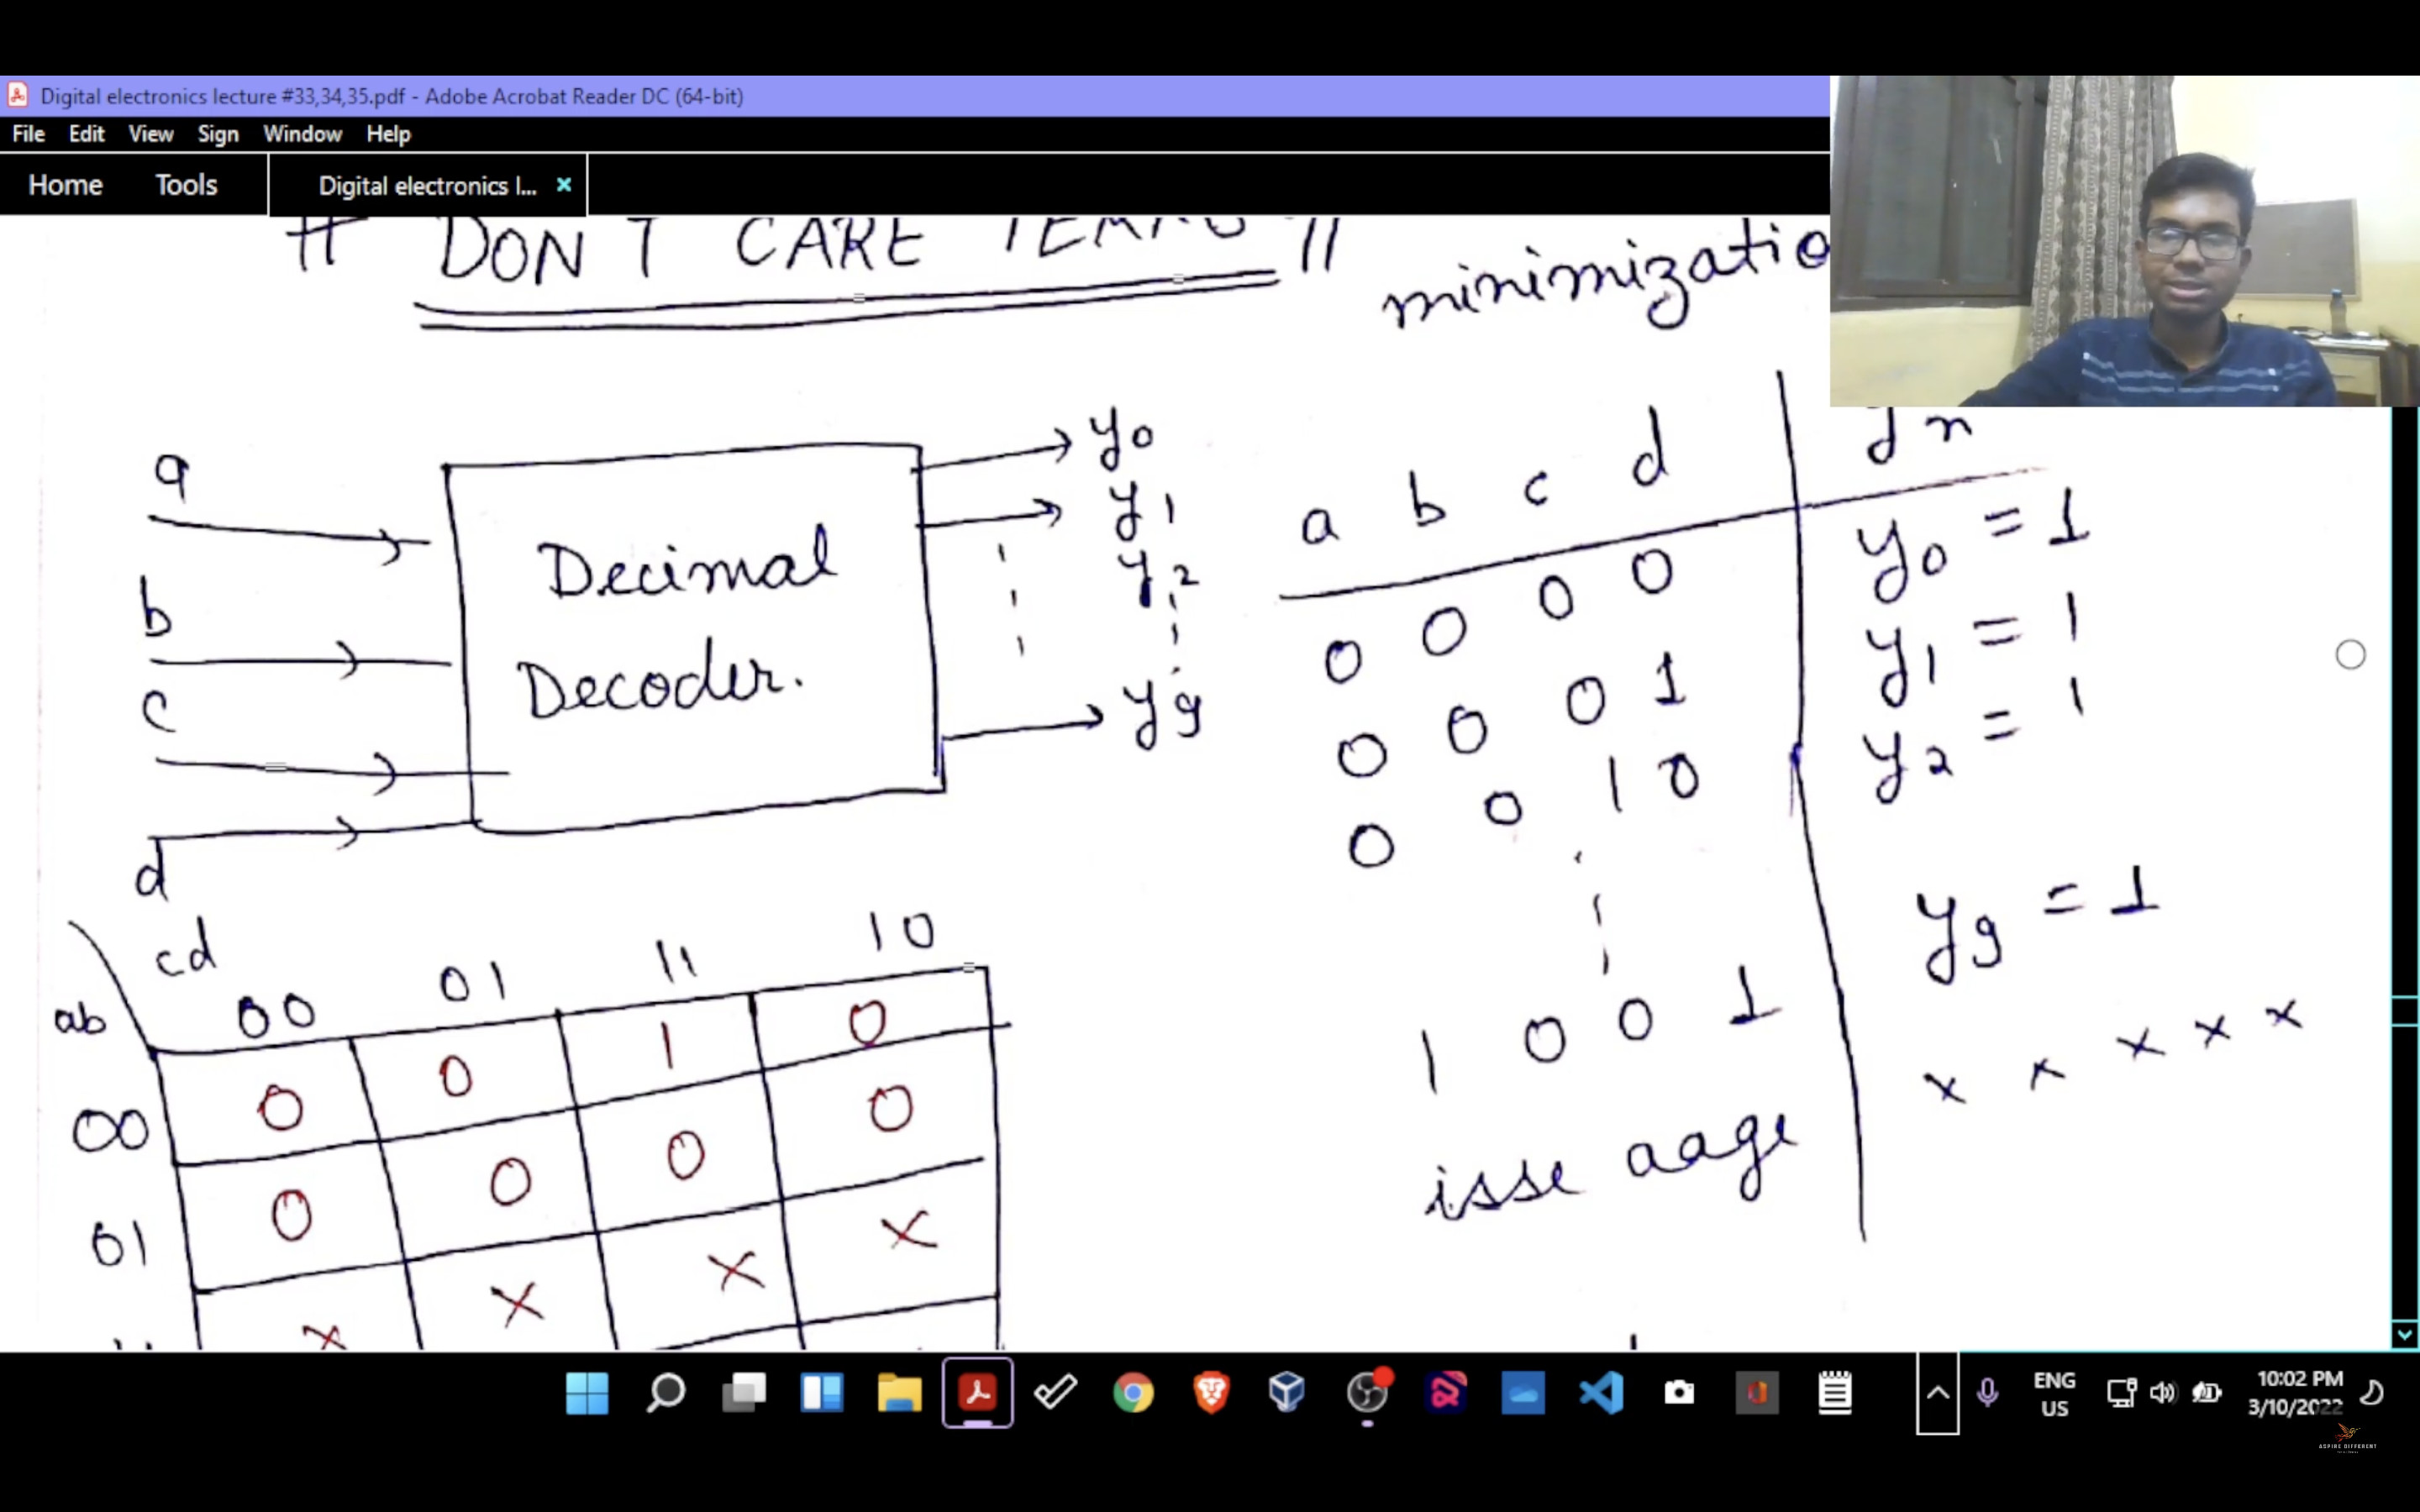 Digital electronics lecture #33,34,35.pdf - Adobe Acrobat Reader DC (64-bit)
File Edit View Sign Window Help
Home Tools Digital electronics l... ×
# DON'T CARE TERMS // minimizatio
a b c d yn
a
b
c
d
Decimal
Decoder.
y0
y1
y2
y9
0 0 0 0 y0 = 1
0 0 0 1 y1 = 1
0 0 1 0 y2 = 1
1 0 0 1 y9 = 1
isse aage x x x x x
cd
ab 00 01 11 10
00 0 0 1 0
01 0 0 0 0
x x x x
ENG
US
10:02 PM
3/10/2022
ASPIRE DIFFERENT